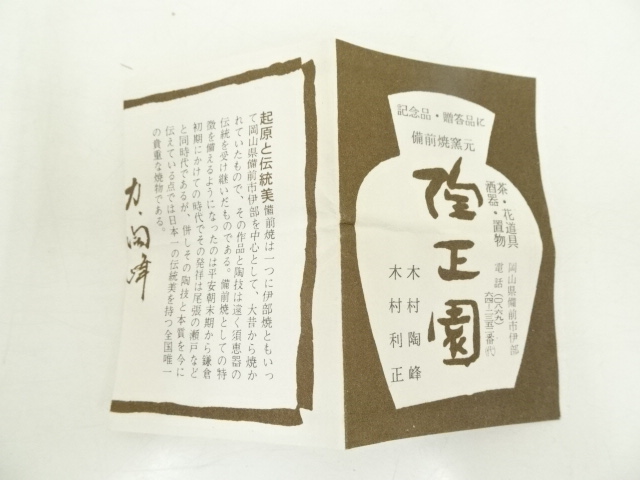 記念品・贈答品に
備前焼窯元
陶正園
茶・花道具
酒器・置物
岡山県備前市伊部
電話(〇八六九)
木村陶峰
木村利正
起原と伝統美 備前焼は一つに伊部焼ともいっ
て岡山県備前市伊部を中心として、大昔から焼か
れていたもので、その作品と陶技は遠く須恵器の
伝統を受け継いだものである。備前焼としての特
徴を備えるようになったのは平安朝末期から鎌倉
初期にかけての時代でその発祥は尾張の瀬戸など
と同時代であるが、併しその陶技と本質を今に
伝えている点では日本一の伝統美を持つ全国唯一
の貴重な焼物である。